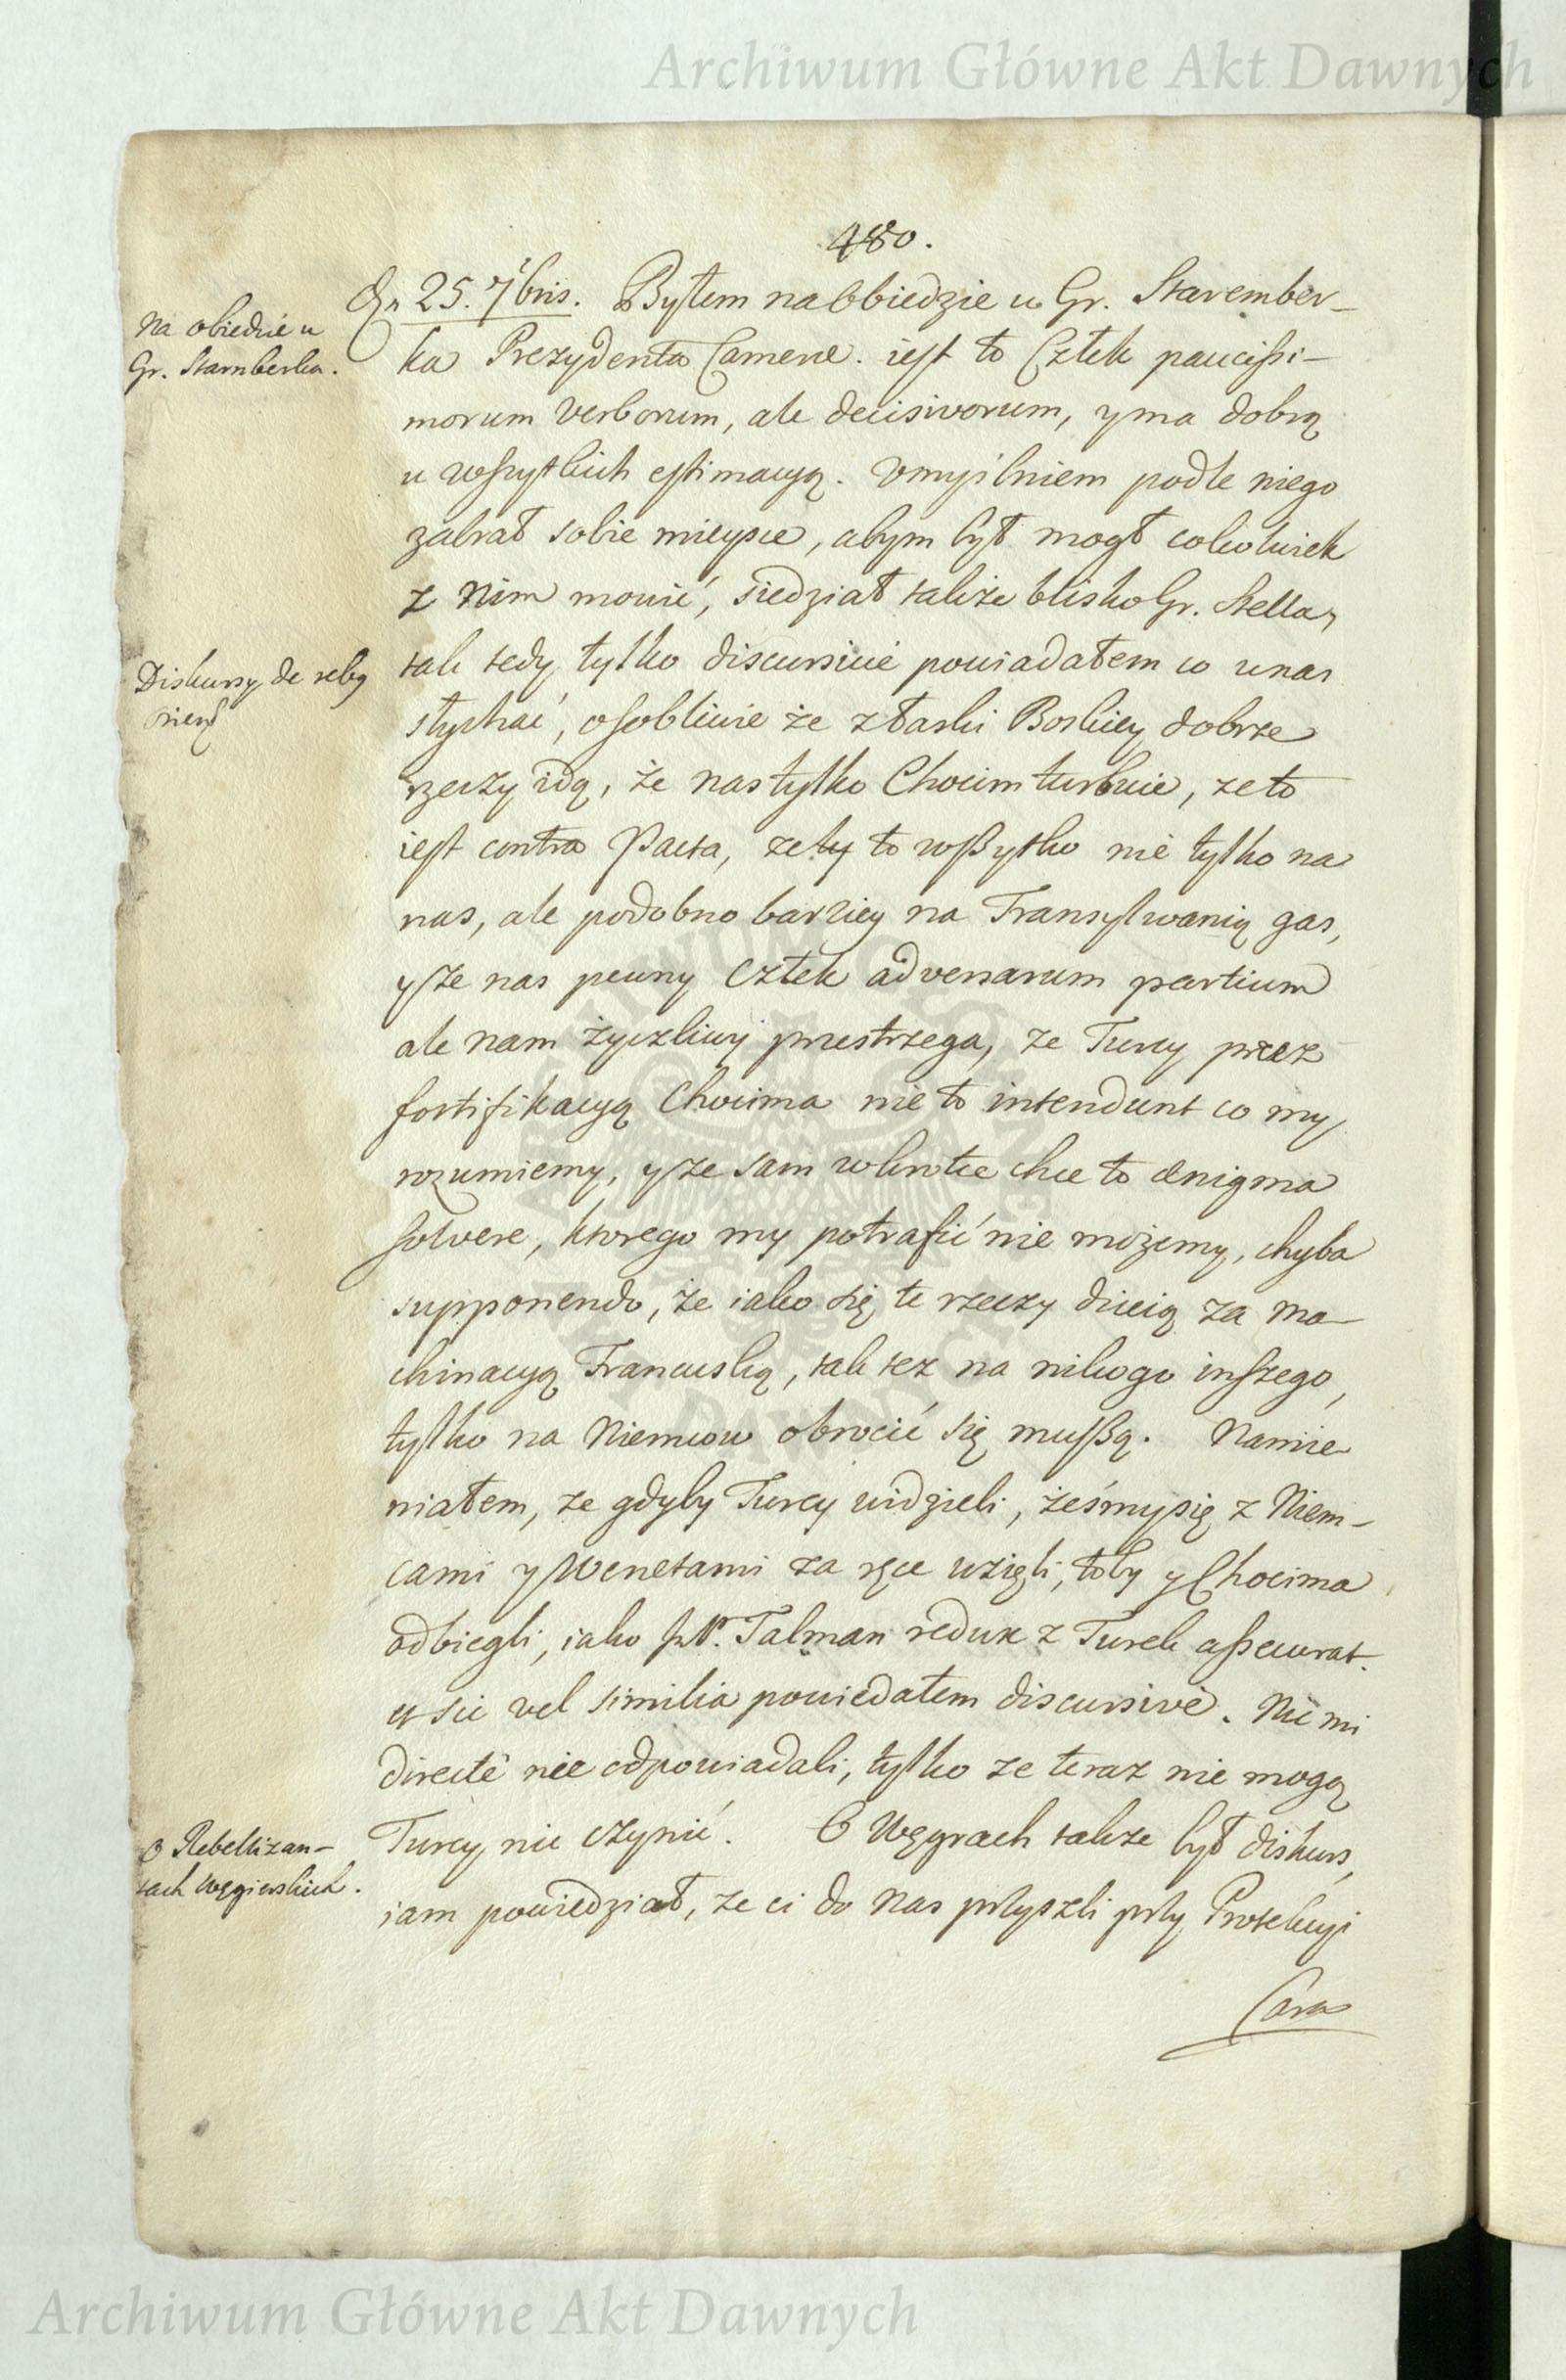 Archiwum Główne Akt Dawnych
480.
Dn 25. 7bris. Byłem na Obiedzie u Gr. Starember-
Na obiedzie u
Gr. Starnberka.
ka Prezydenta Camerae. iest to Człek paucissi-
morum verborum, ale decisivorum, y ma dobrą
u wszystkich estimacyą. Umyślniem podle niego
zabrał sobie mieysce, abym był mogł cokolwiek
z Nim mowić, siedział także blisko Gr. Stella,
Diskursy de rebg
tak tedy tylko discursive powiadałem co u nas
słychać, osobliwie że z łaski Boskiey dobrze
rzeczy idą, że nas tylko Chocim turbuie, ze to
iest contra Pacta, zeby to wszytko nie tylko na
nas, ale podobno barziey na Transylwanią gas,
y że nas pewny Człek adversarum partium
ale nam życzliwy przestrzega, że Turcy przez
fortifikacyą Chocima nie to intendunt co my
rozumiemy, y że sam wkrotce chce to aenigma
solvere, ktorego my potrafić nie możemy, chyba
supponendo, że iako się te rzeczy dzieią za ma-
chinacyą Francuską, tak tez na nikogo inszego,
tylko na Niemcow obrocić się muszą. Namie-
niałem, ze gdyby Turcy widzieli, żeśmy się z Niem-
cami y Wenetami za ręce wzięli, toby y Chocima
odbiegli, iako P. Talman redux z Turek assecurat.
et sic vel similia powiedałem discursive. Nic mi
directe nie odpowiadali, tylko ze teraz nie mogą
Turcy nic czynić. O Węgrach takze był diskurs,
O Rebellizan-
tach węgierskich.
iam powiedział, ze ci do Nas przyszli przy Protekcyi
Cara
Archiwum Główne Akt Dawnych